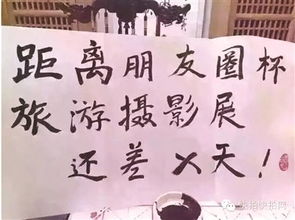 距离朋友圈杯
旅游摄影展
还差乂天！